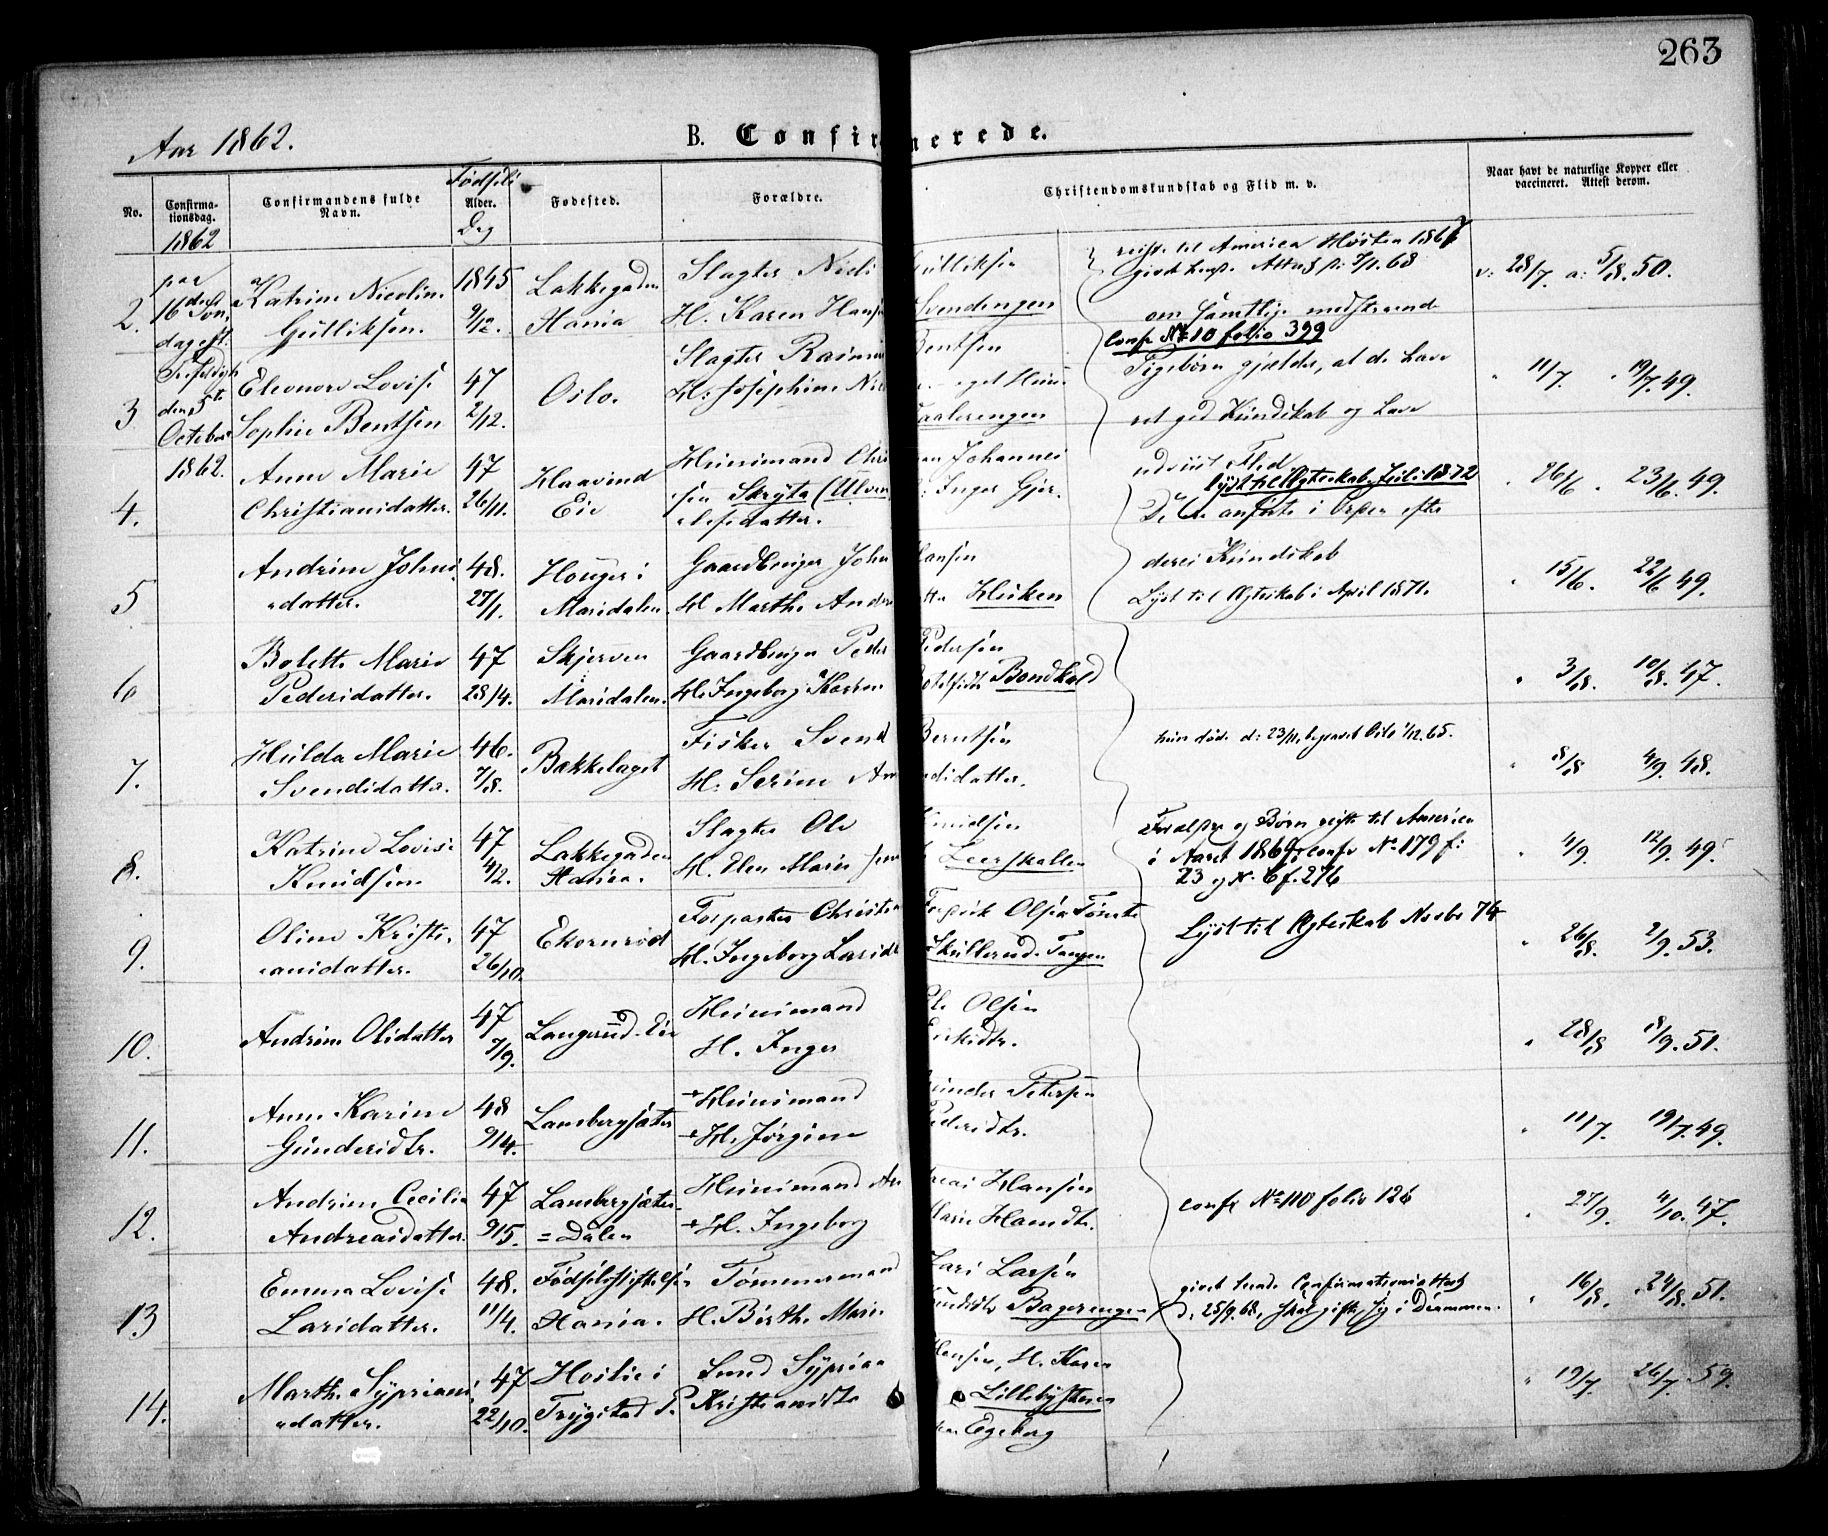 263
Aar 1862.
B. Confirmerede.
No.
Confirmationsdag.
1862
Confirmandens fulde Navn.
Fødsels
Alder.
Dag
Fødested.
Forældre.
Christendomskundskab og Flid m. v.
Naar havt de naturlige Kopper eller
vaccineret. Attest derom.
paa
16de Søn,
dag eft.
den 5te
October
1862.
2.
Katrine Nicolin.
Gulliksen.
1845
9/12.
Lakkegaden
Hania
Slagter Niels Gulliksen
H. Karen Hans Svendengen
reiste til America Høsten 1867
givet hans Attest p: 7/1. 68
om samtlige modstaaende
confr No 10 folio 399
v: 28/7 a: 5/8. 50.
3
Eleonore Lovise
Sophie Bentsen
47
2/12.
Oslo.
Slagter Rasmus Bentsen
H: Josephine Ni
Vaalerengen
Pigebørn gjælder, at de have
god Kundskab og have
11/7. 19/7. 49.
4.
Anne Marie
Christiansdatter.
47
26/11.
Haavind
Eie
Huusmand Chris Johannes
sen Skryta (Ulven : Inger Gjer.
udviist Flid
lyst til Ægteskab Juli 1872
De anførte i Orden efter
26/6 23/6. 49.
5
Andrine Johns
datter.
48.
27/1.
Houger i
Maridalen.
Gaardbruger John Hansen
H. Marthe Anders Huken
deres Kundskab
Lyst til Ægteskab i April 1871.
15/6. 22/6 49.
6
Bolette Marie
Pedersdatter.
47
28/4.
Skjerven
Maridalen.
Gaardbruger Peder Pedersen
H. Ingeborg Karine Bondkald
3/8. 10/8. 47.
7.
Hulda Marie
Svendsdatter.
46.
7/8.
Bakkelaget
Fisker Svend Berntsen
H. Serine An
hun døde d: 23/11, begravet Oslo 1/12. 65.
8/8 4/9. 48.
8.
Katrine Lovise
Knudsen
47
4/2.
Lakkegaden
Hania.
Slagter Ole Knudsen
H. Elen Marie Jen Leerskallen
Forældre og Børn reiste til America
i Aaret 1869, confr No 179 f:
23 og N. 6 f. 276
4/9. 12/9. 49.
9.
Oline Kristi,
ansdatter.
47
26/10.
Ekornrød
Forpagter Christian Fredrik Olsen Tømte
H. Ingeborg Larsdt Skullerud. Tangen
Lyst til Ægteskab Novbr 74
26/8. 2/9. 53.
10.
Andrine Olsdatter
47
7/9.
Langerud. Eie
Huusmand Ole Olsen
H. Inger Eriksdtr.
28/8 8/9. 51.
11.
Anne Karine
Gundersdtr.
48
9/4.
Lambergsæter
Huusmand Gunder Petersen
H. Jørgine Pedersdtr.
11/7. 19/7. 49.
12.
Andrine Cecilie
Andreasdatter.
47
9/5.
Lambergsæter
= Dalen
Huusmand Andreas Hansen
H. Ingeborg Marie Hansdtr.
confr No 110 folio 126
27/9. 4/10. 47.
13
Emma Lovise
Larsdatter.
48.
11/4.
Fødselsstiftelsen
Hania.
Tømmermand Lars Larsen
H. Birthe Marie Knudsdtr Bageringen
givet hende Confirmationsattest
d. 25/9. 68, skal gifte sig i Drammen.
16/8. 24/8. 51.
14.
Marthe Sypriani
datter.
47
22/10.
Hoslie i
Trygstad P.
Smed Syprian Hansen, H. Karen
Kristiansdtr Lillebysteen
Egeberg
19/7. 26/7. 59.